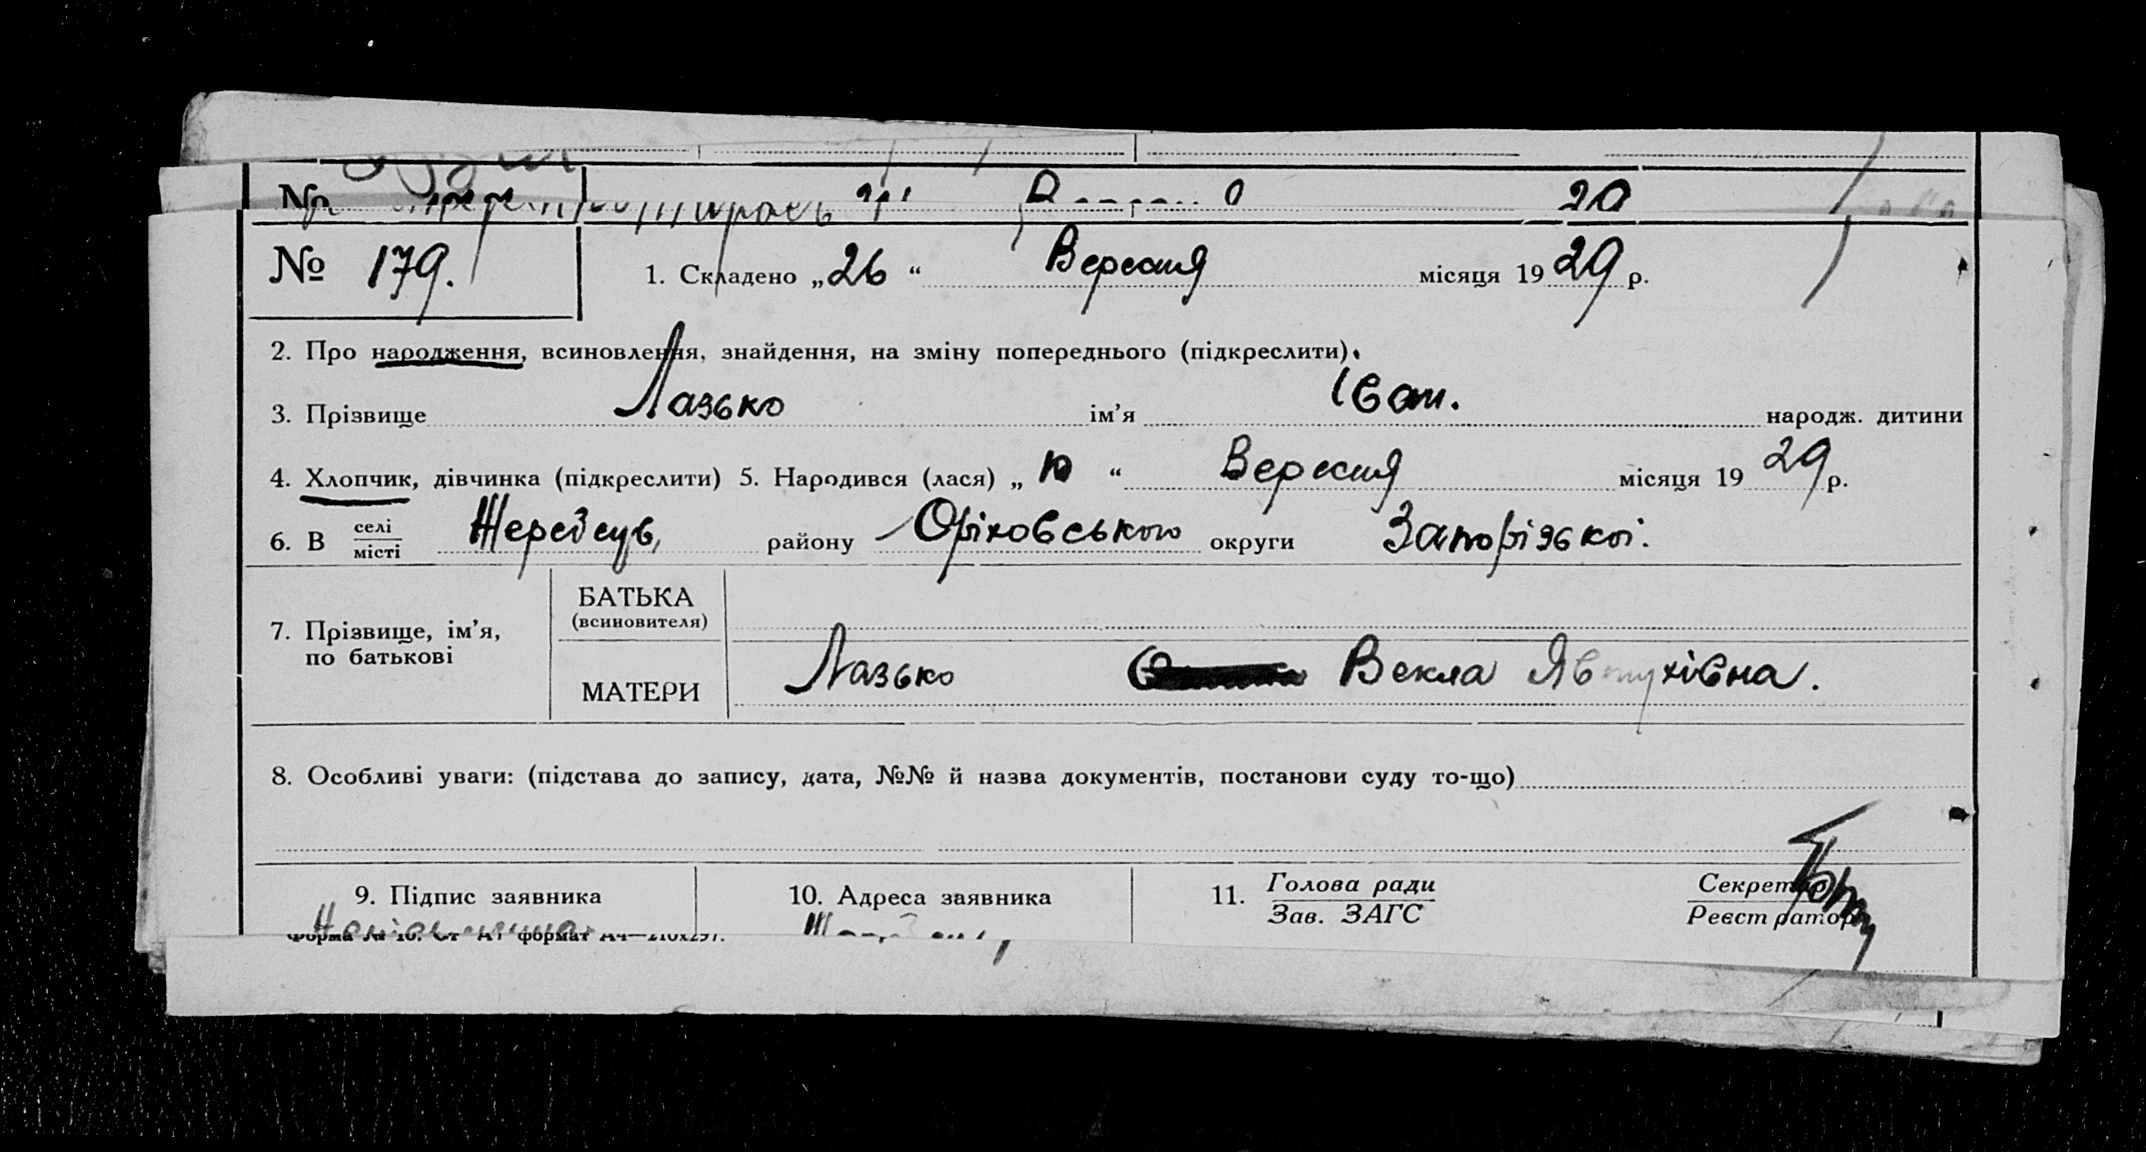 № 179. 1. Складено „26“ Вересня місяця 1929 р.
2. Про народження, всиновлення, знайдення, на зміну попереднього (підкреслити).
3. Прізвище Лазько ім’я Іван. народж. дитини
4. Хлопчик, дівчинка (підкреслити) 5. Народився (лася) „10“ Вересня місяця 1929 р.
6. В селі/місті Жеребець, району Оріховського округи Запорізької.
7. Прізвище, ім’я, по батькові
БАТЬКА
(всиновителя)
МАТЕРИ Лазько Векла Явтухівна.
8. Особливі уваги: (підстава до запису, дата, №№ й назва документів, постанови суду то-що)
9. Підпис заявника 10. Адреса заявника 11. Голова ради Секретар
Зав. ЗАГС Реєстратор